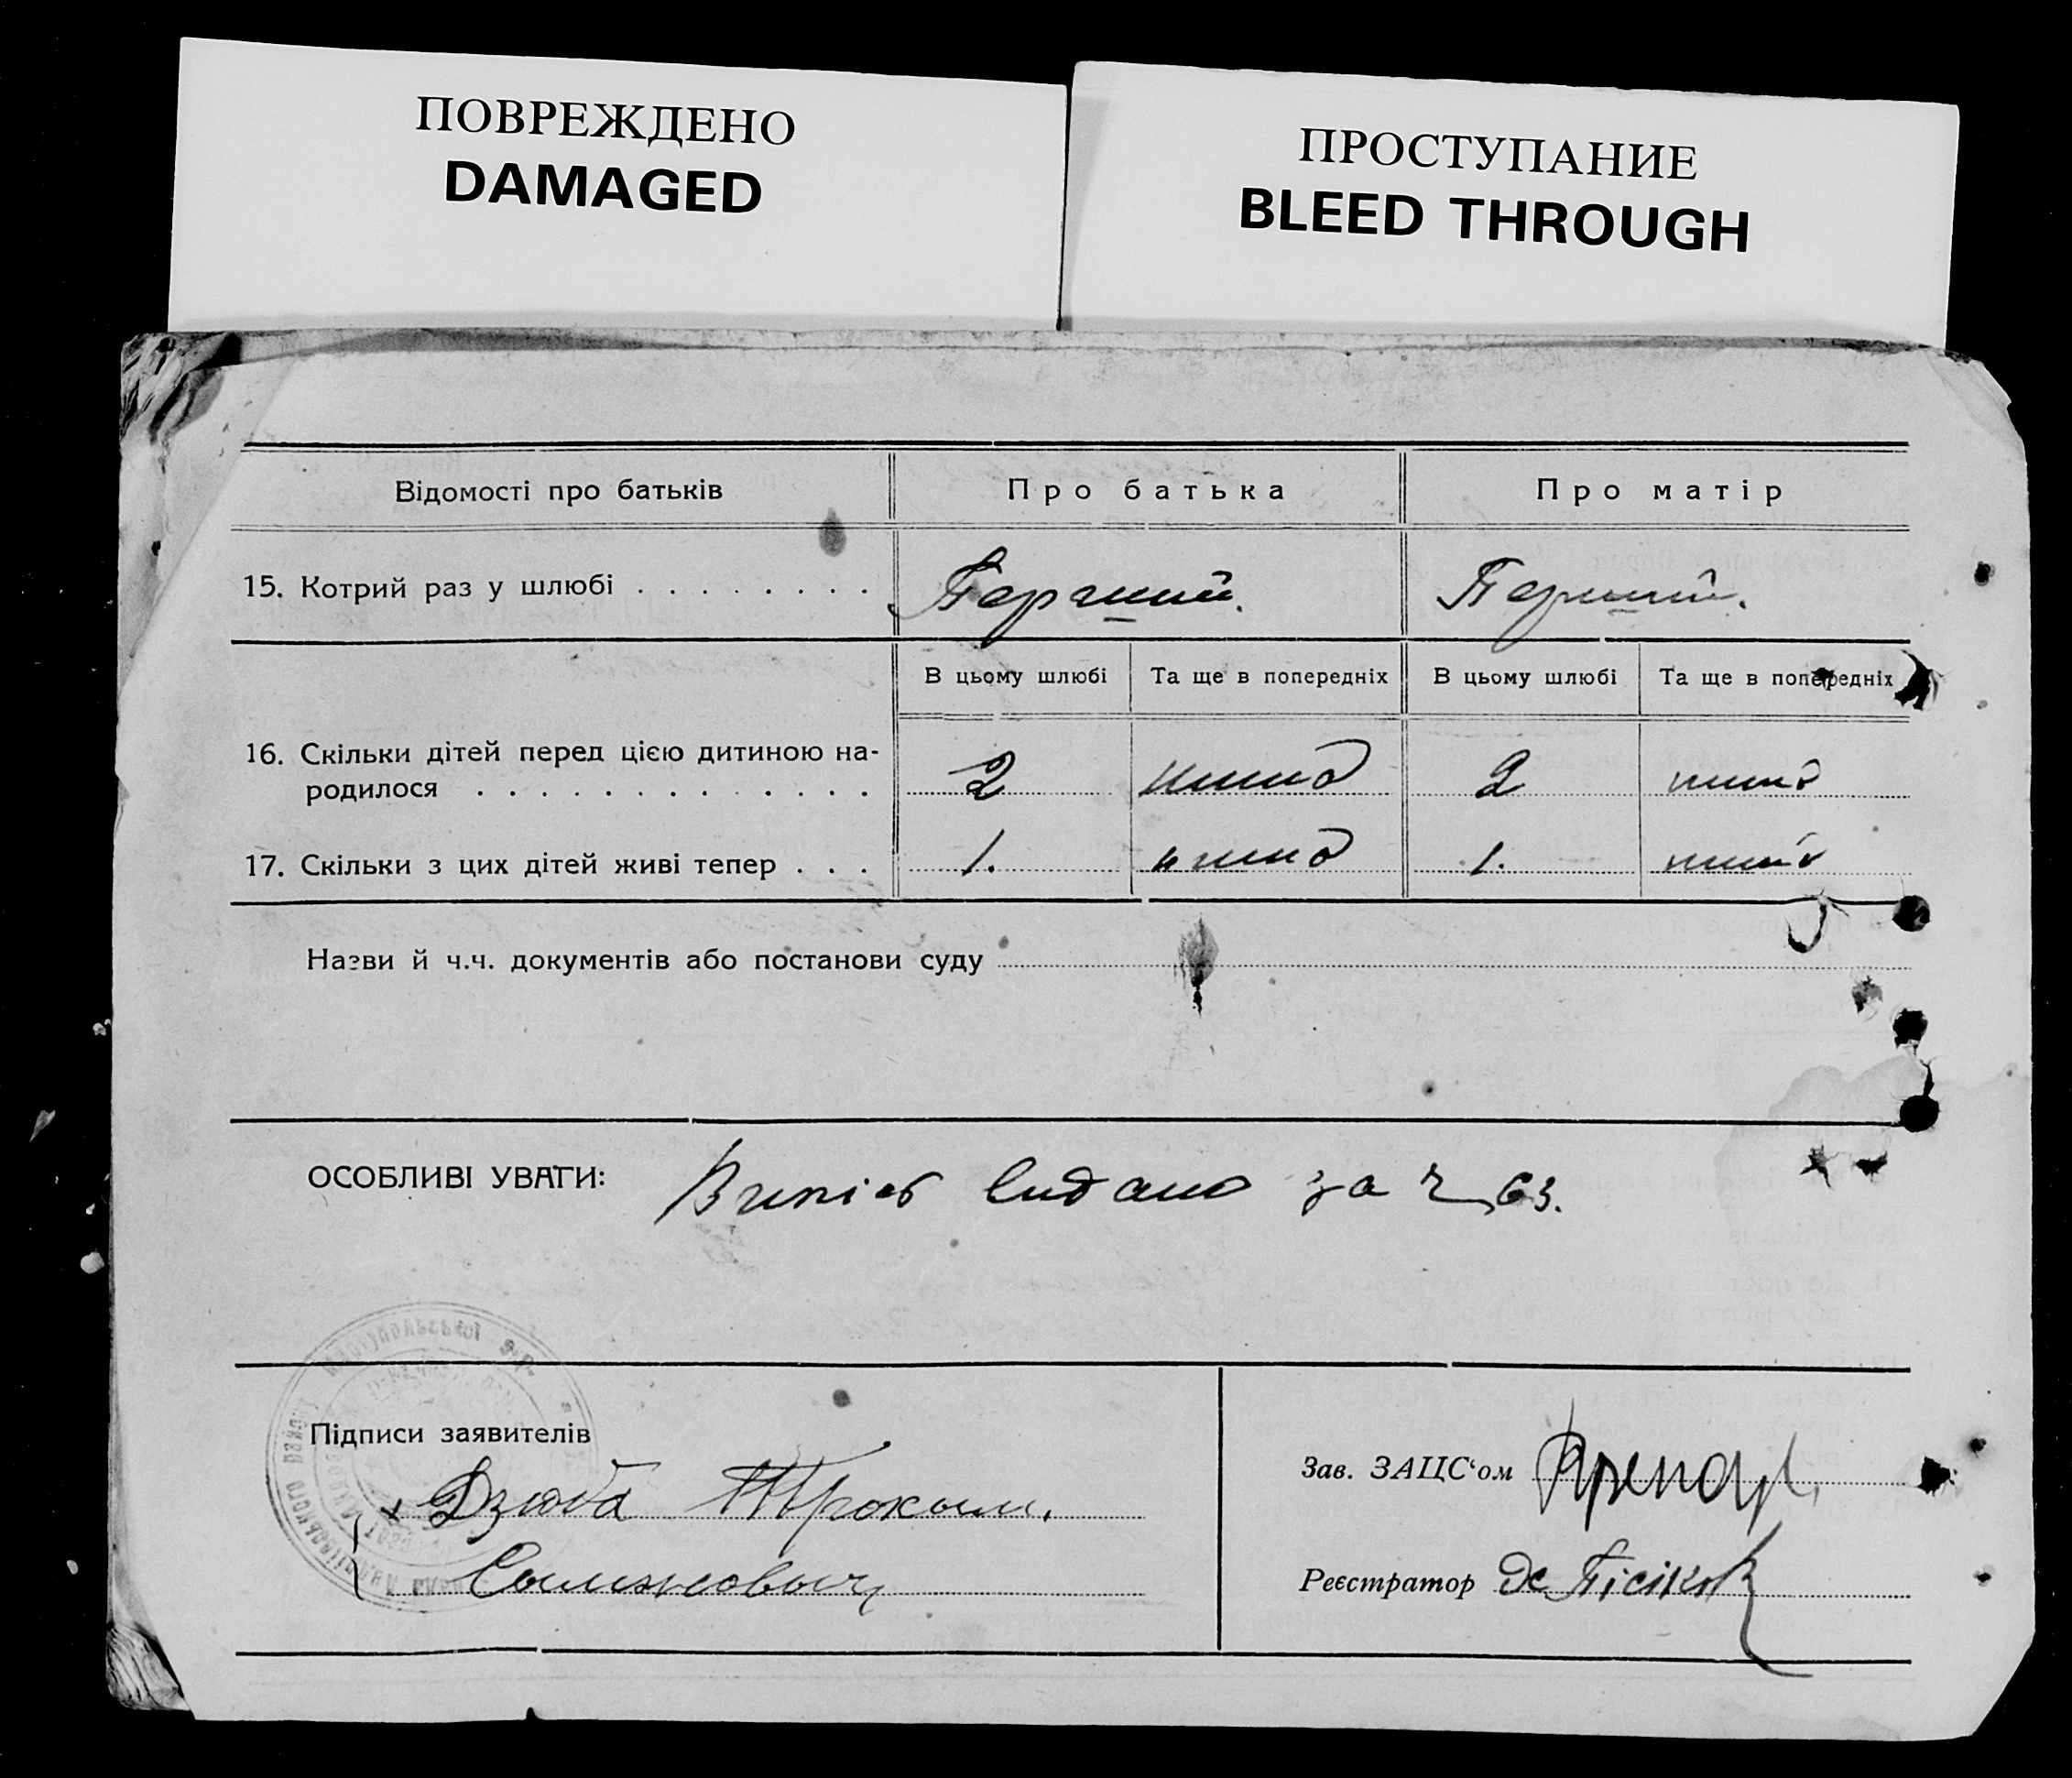 ПОВРЕЖДЕНО
DAMAGED
ПРОСТУПАНИЕ
BLEED THROUGH
Відомості про батьків
Про батька
Про матір
15. Котрий раз у шлюбі
Перший.
Перший.
В цьому шлюбі
Та ще в попередніх
В цьому шлюбі
Та ще в попередніх
16. Скільки дітей перед цією дитиною на-
родилося
2
2
17. Скільки з цих дітей живі тепер
1.
1.
Назви й ч.ч. документів або постанови суду
ОСОБЛИВІ УВАГИ:
видано за 63.
Підписи заявителів
Дзюба Трохим
Зав. ЗАЦС'ом
Реєстратор